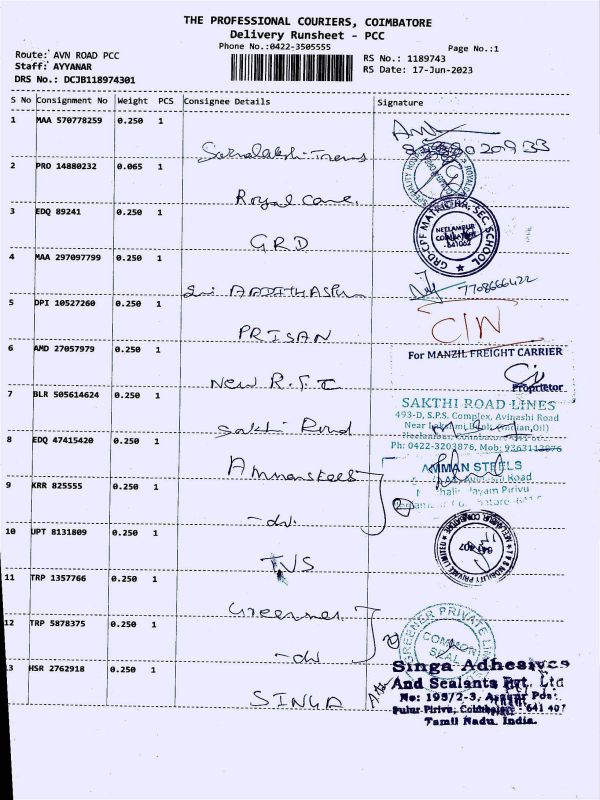 THE PROFESSIONAL COURIERS, COIMBATORE
Delivery Runsheet - PCC
Phone No.:0422-3505555
Page No.:1
Route: AVN ROAD PCC
RS No.: 1189743
Staff: AYYANAR
RS Date: 17-Jun-2023
DRS No.: DCJB118974301
S No Consignment No Weight PCS Consignee Details Signature
1 MAA 570778259 0.250 1
2 PRO 14880232 0.065 1
Royal Care.
3 EDQ 89241 0.250 1
GRD
GRD-CPF MATRIC.HR. SEC. SCHOOL
NEELAMBUR
COIMBATORE
-641062
4 MAA 297097799 0.250 1
Sri
7708666422
5 DPI 10527260 0.250 1
PRISAN
CIW
6 AMD 27057979 0.250 1
For MANZIL FREIGHT CARRIER
Proprietor
New R.T.C
7 BLR 505614624 0.250 1
SAKTHI ROAD LINES
493-D, S.P.S. Complex, Avinashi Road
Near Lakshmi Bunk (Indian,Oil)
Ph: 0422-3203876, Mob: 9363112876
Sakthi Road
8 EDQ 47415420 0.250 1
AMMAN STEELS
Ammansteels
9 KRR 825555 0.250 1
-do.
10 UPT 8131809 0.250 1
TVS
641 407
11 TRP 1357766 0.250 1
Greener
12 TRP 5878375 0.250 1
GREENER PRIVATE
COMMON
SEAL
-do
13 HSR 2762918 0.250 1
SINGA
Singa Adhesives
And Sealants Pvt. Ltd
No: 195/2-3, Arasur Post.
Pulur Pirivu, Coimbatore - 641 407
Tamil Nadu. India.